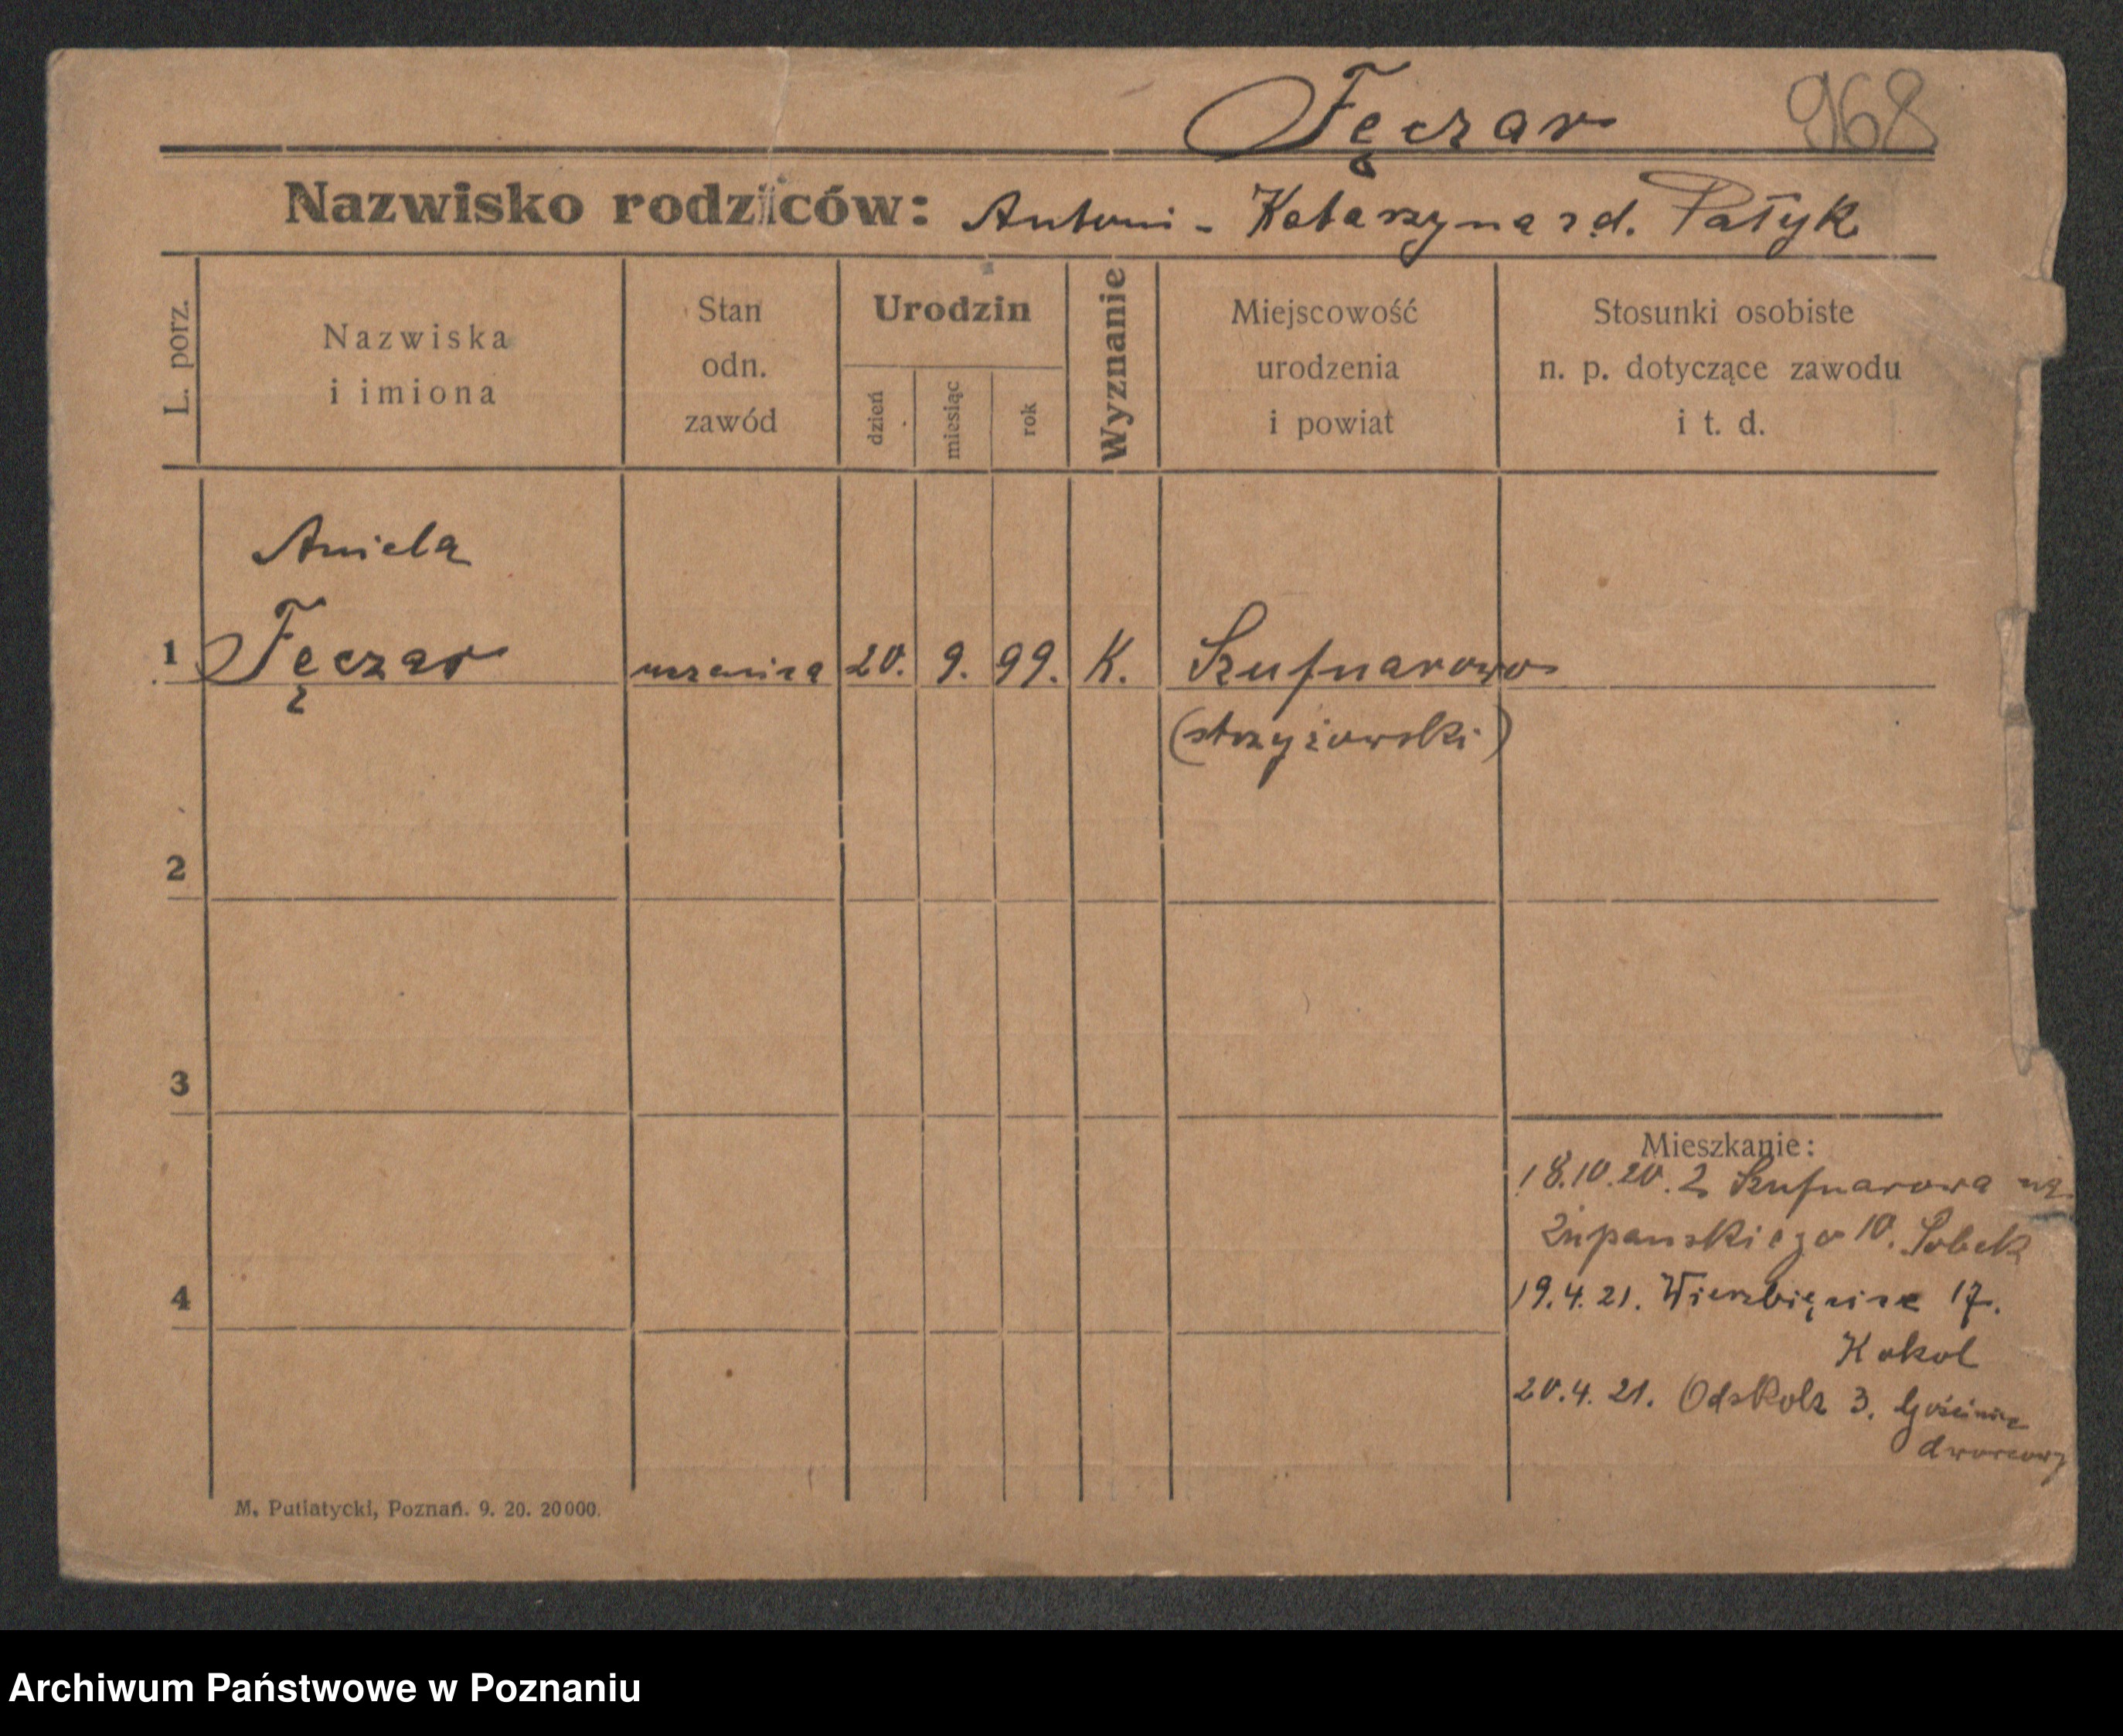 Fęczar 968
Nazwisko rodziców: Antoni - Katarzyna zd. Patyk
L. porz.
Nazwiska
i imiona
Stan
odn.
zawód
Urodzin
dzień
miesiąc
rok
Wyznanie
Miejscowość
urodzenia
i powiat
Stosunki osobiste
n. p. dotyczące zawodu
i t. d.
Aniela
1 Fęczar uczenica 20. 9. 99. K. Szufnarowo
(strzyżowski)
2
3
Mieszkanie:
18.10.20. z Szufnarowa
Żupańskiego 10. Sobek
4 19.4.21. Wierzbięcice 17.
Kokol
20.4.21. Odskolz 3. Gościniec
dworcowy
M. Putiatycki, Poznań. 9. 20. 20000.
Archiwum Państwowe w Poznaniu